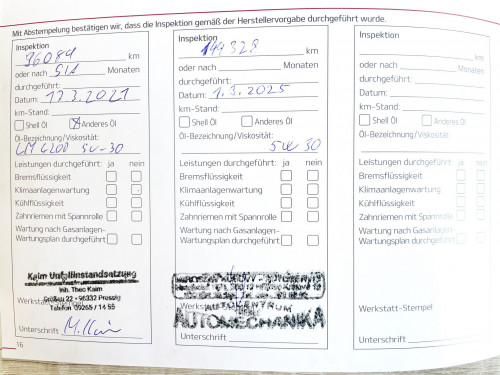 Mit Abstempelung bestätigen wir, dass die Inspektion gemäß der Herstellervorgabe durchgeführt wurde.
Inspektion
96089 km
oder nach SIA Monaten
durchgeführt:
Datum: 17.3.2021
km-Stand:
Shell Öl Anderes Öl
Öl-Bezeichnung/Viskosität:
LM 4200 5W-30
Leistungen durchgeführt: ja nein
Bremsflüssigkeit
Klimaanlagenwartung
Kühlflüssigkeit
Zahnriemen mit Spannrolle
Wartung nach Gasanlagen-
Wartungsplan durchgeführt
Kaim Unfallinstandsetzung
Inh. Theo Kaim
Größau 22 - 96332 Pressig
Telefon 09265 / 14 55
Werkstatt
Unterschrift
16
Inspektion
149 328 km
oder nach Monaten
durchgeführt:
Datum: 1.3.2025
km-Stand:
Shell Öl Anderes Öl
Öl-Bezeichnung/Viskosität:
5W 30
Leistungen durchgeführt: ja nein
Bremsflüssigkeit
Klimaanlagenwartung
Kühlflüssigkeit
Zahnriemen mit Spannrolle
Wartung nach Gasanlagen-
Wartungsplan durchgeführt
AUTOCENTRUM
AUTOMECHANIKA
Unterschrift
Inspektion
km
oder nach Monaten
durchgeführt:
Datum:
km-Stand:
Shell Öl Anderes Öl
Öl-Bezeichnung/Viskosität:
Leistungen durchgeführt: ja nein
Bremsflüssigkeit
Klimaanlagenwartung
Kühlflüssigkeit
Zahnriemen mit Spannrolle
Wartung nach Gasanlagen-
Wartungsplan durchgeführt
Werkstatt-Stempel
Unterschrift